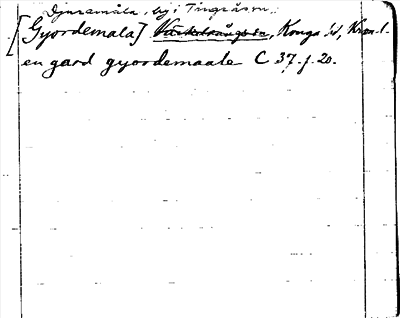 Djuramåla, by i Tingsåsm.
[Gyordemala] Väckelsångs sn, Konga hd, Kron. l.
en gard gyordemaale C 37. f. 20.